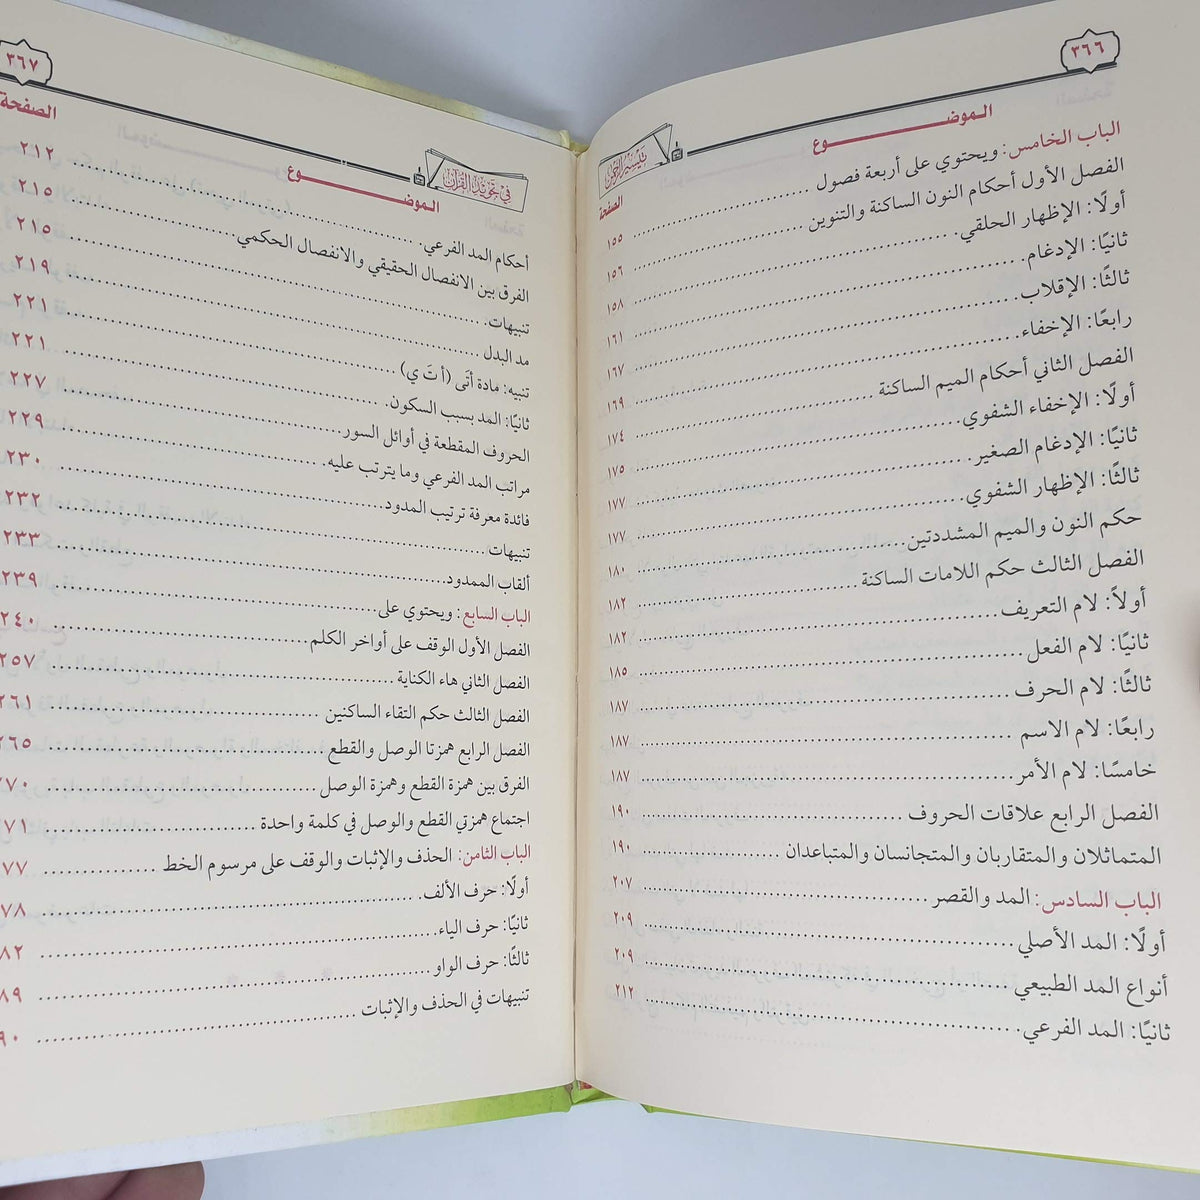 ٣٦٦
تيسير الرحمن
الموضوع الصفحة
الباب الخامس: ويحتوي على أربعة فصول ١٥٥
الفصل الأول أحكام النون الساكنة والتنوين ١٥٦
أولًا: الإظهار الحلقي ١٥٨
ثانيًا: الإدغام ١٦١
ثالثًا: الإقلاب ١٦٧
رابعًا: الإخفاء ١٦٩
الفصل الثاني أحكام الميم الساكنة ١٧٤
أولًا: الإخفاء الشفوي ١٧٥
ثانيًا: الإدغام الصغير ١٧٧
ثالثًا: الإظهار الشفوي ١٧٧
حكم النون والميم المشددتين ١٨٠
الفصل الثالث حكم اللامات الساكنة ١٨٢
أولاً: لام التعريف ١٨٢
ثانيًا: لام الفعل ١٨٥
ثالثًا: لام الحرف ١٨٧
رابعًا: لام الاسم ١٨٧
خامسًا: لام الأمر ١٨٧
الفصل الرابع علاقات الحروف ١٩٠
المتماثلان والمتقاربان والمتجانسان والمتباعدان ١٩٠
الباب السادس: المد والقصر ٢٠٧
أولًا: المد الأصلي ٢٠٩
أنواع المد الطبيعي ٢٠٩
ثانيًا: المد الفرعي ٢١٢
٣٦٧
في تجويد القرآن
الموضوع الصفحة
أحكام المد الفرعي ٢١٢
الفرق بين الانفصال الحقيقي والانفصال الحكمي ٢١٥
تنبيهات ٢١٥
مد البدل ٢١٩
تنبيه: مادة أتَى (أ تَ ي) ٢٢١
ثانيًا: المد بسبب السكون ٢٢١
الحروف المقطعة في أوائل السور ٢٢٧
مراتب المد الفرعي وما يترتب عليه ٢٢٩
فائدة معرفة ترتيب المدود ٢٣٠
تنبيهات ٢٣٢
ألقاب الممدود ٢٣٣
الباب السابع: ويحتوي على ٢٣٩
الفصل الأول الوقف على أواخر الكلم ٢٤٠
الفصل الثاني هاء الكناية ٢٥٧
الفصل الثالث حكم التقاء الساكنين ٢٦١
الفصل الرابع همزتا الوصل والقطع ٢٦٥
الفرق بين همزة القطع وهمزة الوصل ٧٠
اجتماع همزتي القطع والوصل في كلمة واحدة ٧١
الباب الثامن: الحذف والإثبات والوقف على مرسوم الخط ٧٧
أولًا: حرف الألف ٧٨
ثانيًا: حرف الياء ٨٢
ثالثًا: حرف الواو ٨٩
تنبيهات في الحذف والإثبات ٩٠